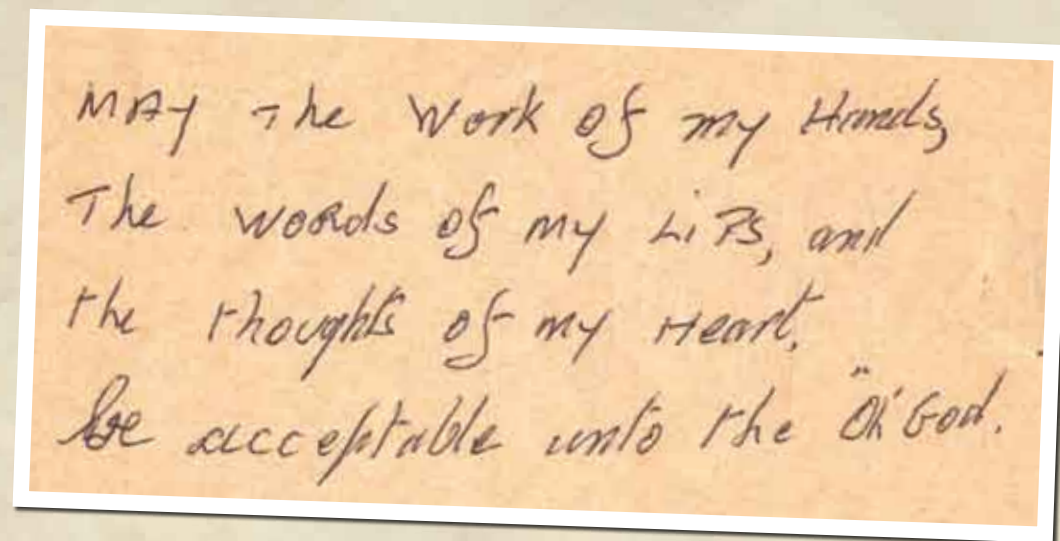 MAY The Work of my Hands,
The WORds of my LiPS, and
the thoughts of my Heart.
be acceptable unto the "Oh" God.